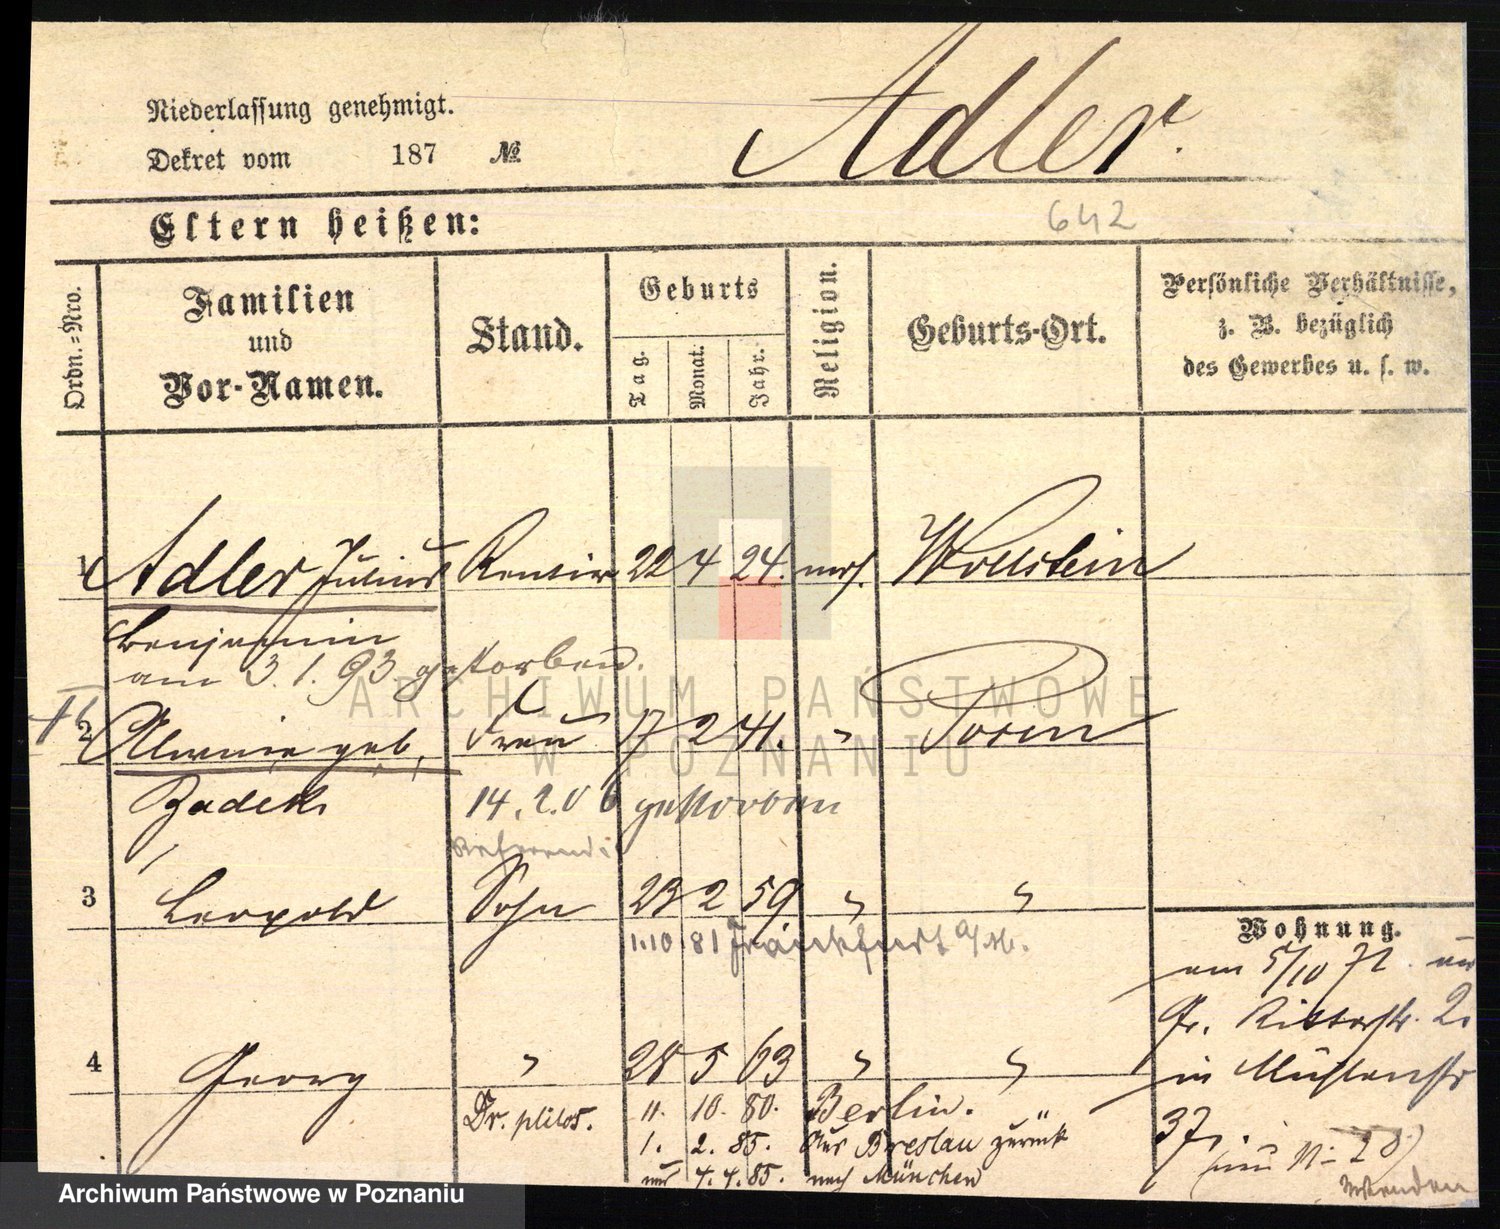 Niederlassung genehmigt.
Dekret vom 187 №
Adler.
Eltern heißen:
642
Ordn.-Nro.
Familien und Vor-Namen.
Stand.
Geburts
Tag.
Monat.
Jahr.
Religion.
Geburts-Ort.
Persönliche Verhältnisse,
z. B. bezüglich
des Gewerbes u. s. w.
1 Adler Julius Rentier 22 4 24. mos. Wollstein
Benjamin
am 3.1.93 gestorben.
2 geb. Frau 17 2 41. " Posen
Zadek 14.2.06 gestorben
3 Leopold Sohn 23 2 59 " "
1.10 81 Frankfurt a/M.
Wohnung.
am 5/10 72
Gr. Ritterstr. 2
4 Georg " 28 5 63 " "
in Mühlenstr
37,
Dr. philos. 11. 10. 80. Berlin.
1. 2. 85. Aus Breslau zurück
4. 4. 85. nach München
Wenden
ARCHIWUM PAŃSTWOWE
W POZNANIU
Archiwum Państwowe w Poznaniu